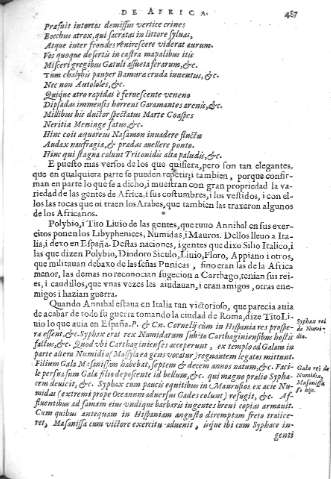 DE AFRICA. 487
Præfuit intortos demissus vertice crines
Bocchus atrox, qui sacratas in littore syluas,
Atque inter frondes reuirescere viderat aurum.
Vos quoque desertis in castra mapalibus itis
Misceri gregibus Getuli assueta ferarum, &c.
Tum chalybis pauper Bamurœ cruda iuuentus, &c.
Nec non Autololes, &c.
Quique atro rapidas efferuescente veneno
Dipsadas immensis horrent Garamantes arenis, &c.
Millibus his ductor spectatus Marte Coaspes
Neritia Meninge satus, &c.
Hinc coit æquoreus Nasamon inuadere fluctu
Audax naufragia, & prædas auellere ponto.
Hinc qui stagna colunt Tritonidis alta paludis, &c.
E puesto mas versos de los que quisiera, pero son tan elegantes,
que en qualquiera parte se pueden repetir; i tambien, porque confir-
man en parte lo que se a dicho, i muestran con gran propriedad la va-
riedad de las gentes de Africa, i sus costumbres, i los vestidos, i con e-
llos las tocas que oi traen los Arabes, que tambien las traxeron algunos
de los Africanos.
Polybio, i Tito Liuio de las gentes, que tuuo Annibal en sus exer-
citos ponen los Libyphenices, Numidas, i Mauros. Dellos lleuo a Ita-
lia, i dexo en España. Destas naciones, i gentes que dixo Silio Italico, i
las que dizen Polybio, Diodoro Siculo, Liuio, Floro, Appiano i otros,
que militauan debaxo de las señas Punicas, sino eran las de la Africa
menor, las demas no reconocian sugecion a Carthago, tenian sus rei-
es, i caudillos, que vnas vezes les aiudauan, i eran amigos, otras ene-
migos i hazian guerra.
Quando Annibal estaua en Italia tan victorioso, que parecia auia
de acabar de todo su guerra tomando la ciudad de Roma, dize Tito Li-
uio lo que auia en España. P. & Cn. Cornelij cùm in Hispania res prospe-
ræ essent, &c. Syphax erat rex Numidarum subitò Carthaginiensibus hostis
factus, &c. Quod vbi Carthaginienses acceperunt, ex templo ad Galam in
parte altera Numidiæ (Massylia ea gens vocatur) regnantem legatos mittunt.
Filium Gala Masanissam habebat, septem & decem annos natum, &c. Faci-
lè persuasum Galæ filio deposcente id bellum, &c. qui magno prælio Sypha-
cem deuicit, &c. Syphax cum paucis equitibus in Maurusios ex acie Nu-
midas (extremi prope Oceanum aduersus Gades colunt) refugit, &c. Af-
fluentibus ad famam eius vndique barbaris ingentes breui copias armauit.
Cum quibus antequam in Hispaniam angusto diremptam freto traiice-
ret, Masanissa cum victore exercitu aduenit, isque ibi cum Syphace in-
genti
Syphax rei
de Numi-
dia.
Gala rei de
Numidia,
Masanissa
su hijo.